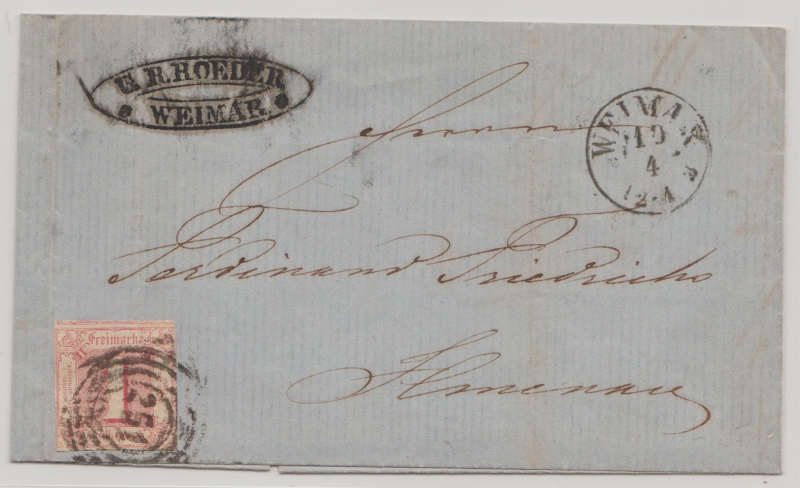 R. HOEDER
WEIMAR.
WEIMAR
19
4
12-4
Herrn
Ferdinand Friedrichs
Ilmenau
Freimarke
1
251